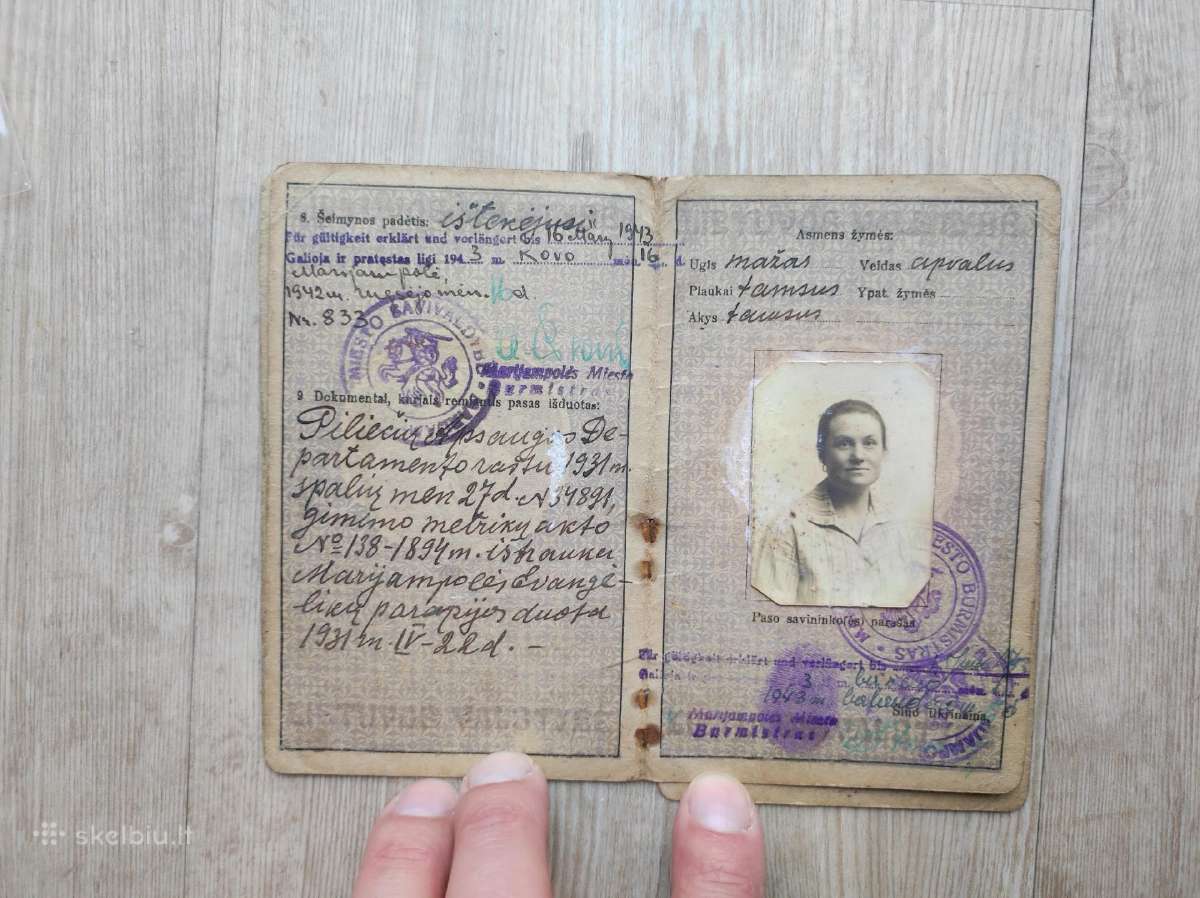 8. Šeimynos padėtis: ištekėjusi
Für gültigkeit erklärt und vorlängert bis 16 März 1943
Galioja ir pratęstas ligi 1943 m. Kovo mėn. 16 d.
Marijampolė,
1942 m. rugsėjo mėn. 16 d.
Nr. 833
MIESTO SAVIVALDYBĖ
Marijampolės Miesto
Burmistras
9 Dokumentai, kuriais remiantis pasas išduotas:
Piliečių Apsaugos De-
partamento raštu 1931 m.
spalių men 27 d. N 34891,
gimimo metrikų akto
No 138-1894 m. ištrauka
Marijampolės Evange-
likų parapijos duota
1931 m. IV-22 d. -
Asmens žymės:
Ugis mažas Veidas apvalus
Plaukai tamsus Ypat. žymės
Akys tamsus
MIESTO BURMISTRAS
Paso savininko(ės) parašas
Für gültigkeit erklärt und vorlängert bis
Galioja ir 3 m. mėn.
1943 m.
Marijampolės Miesto
Burmistras
skelbiu.lt